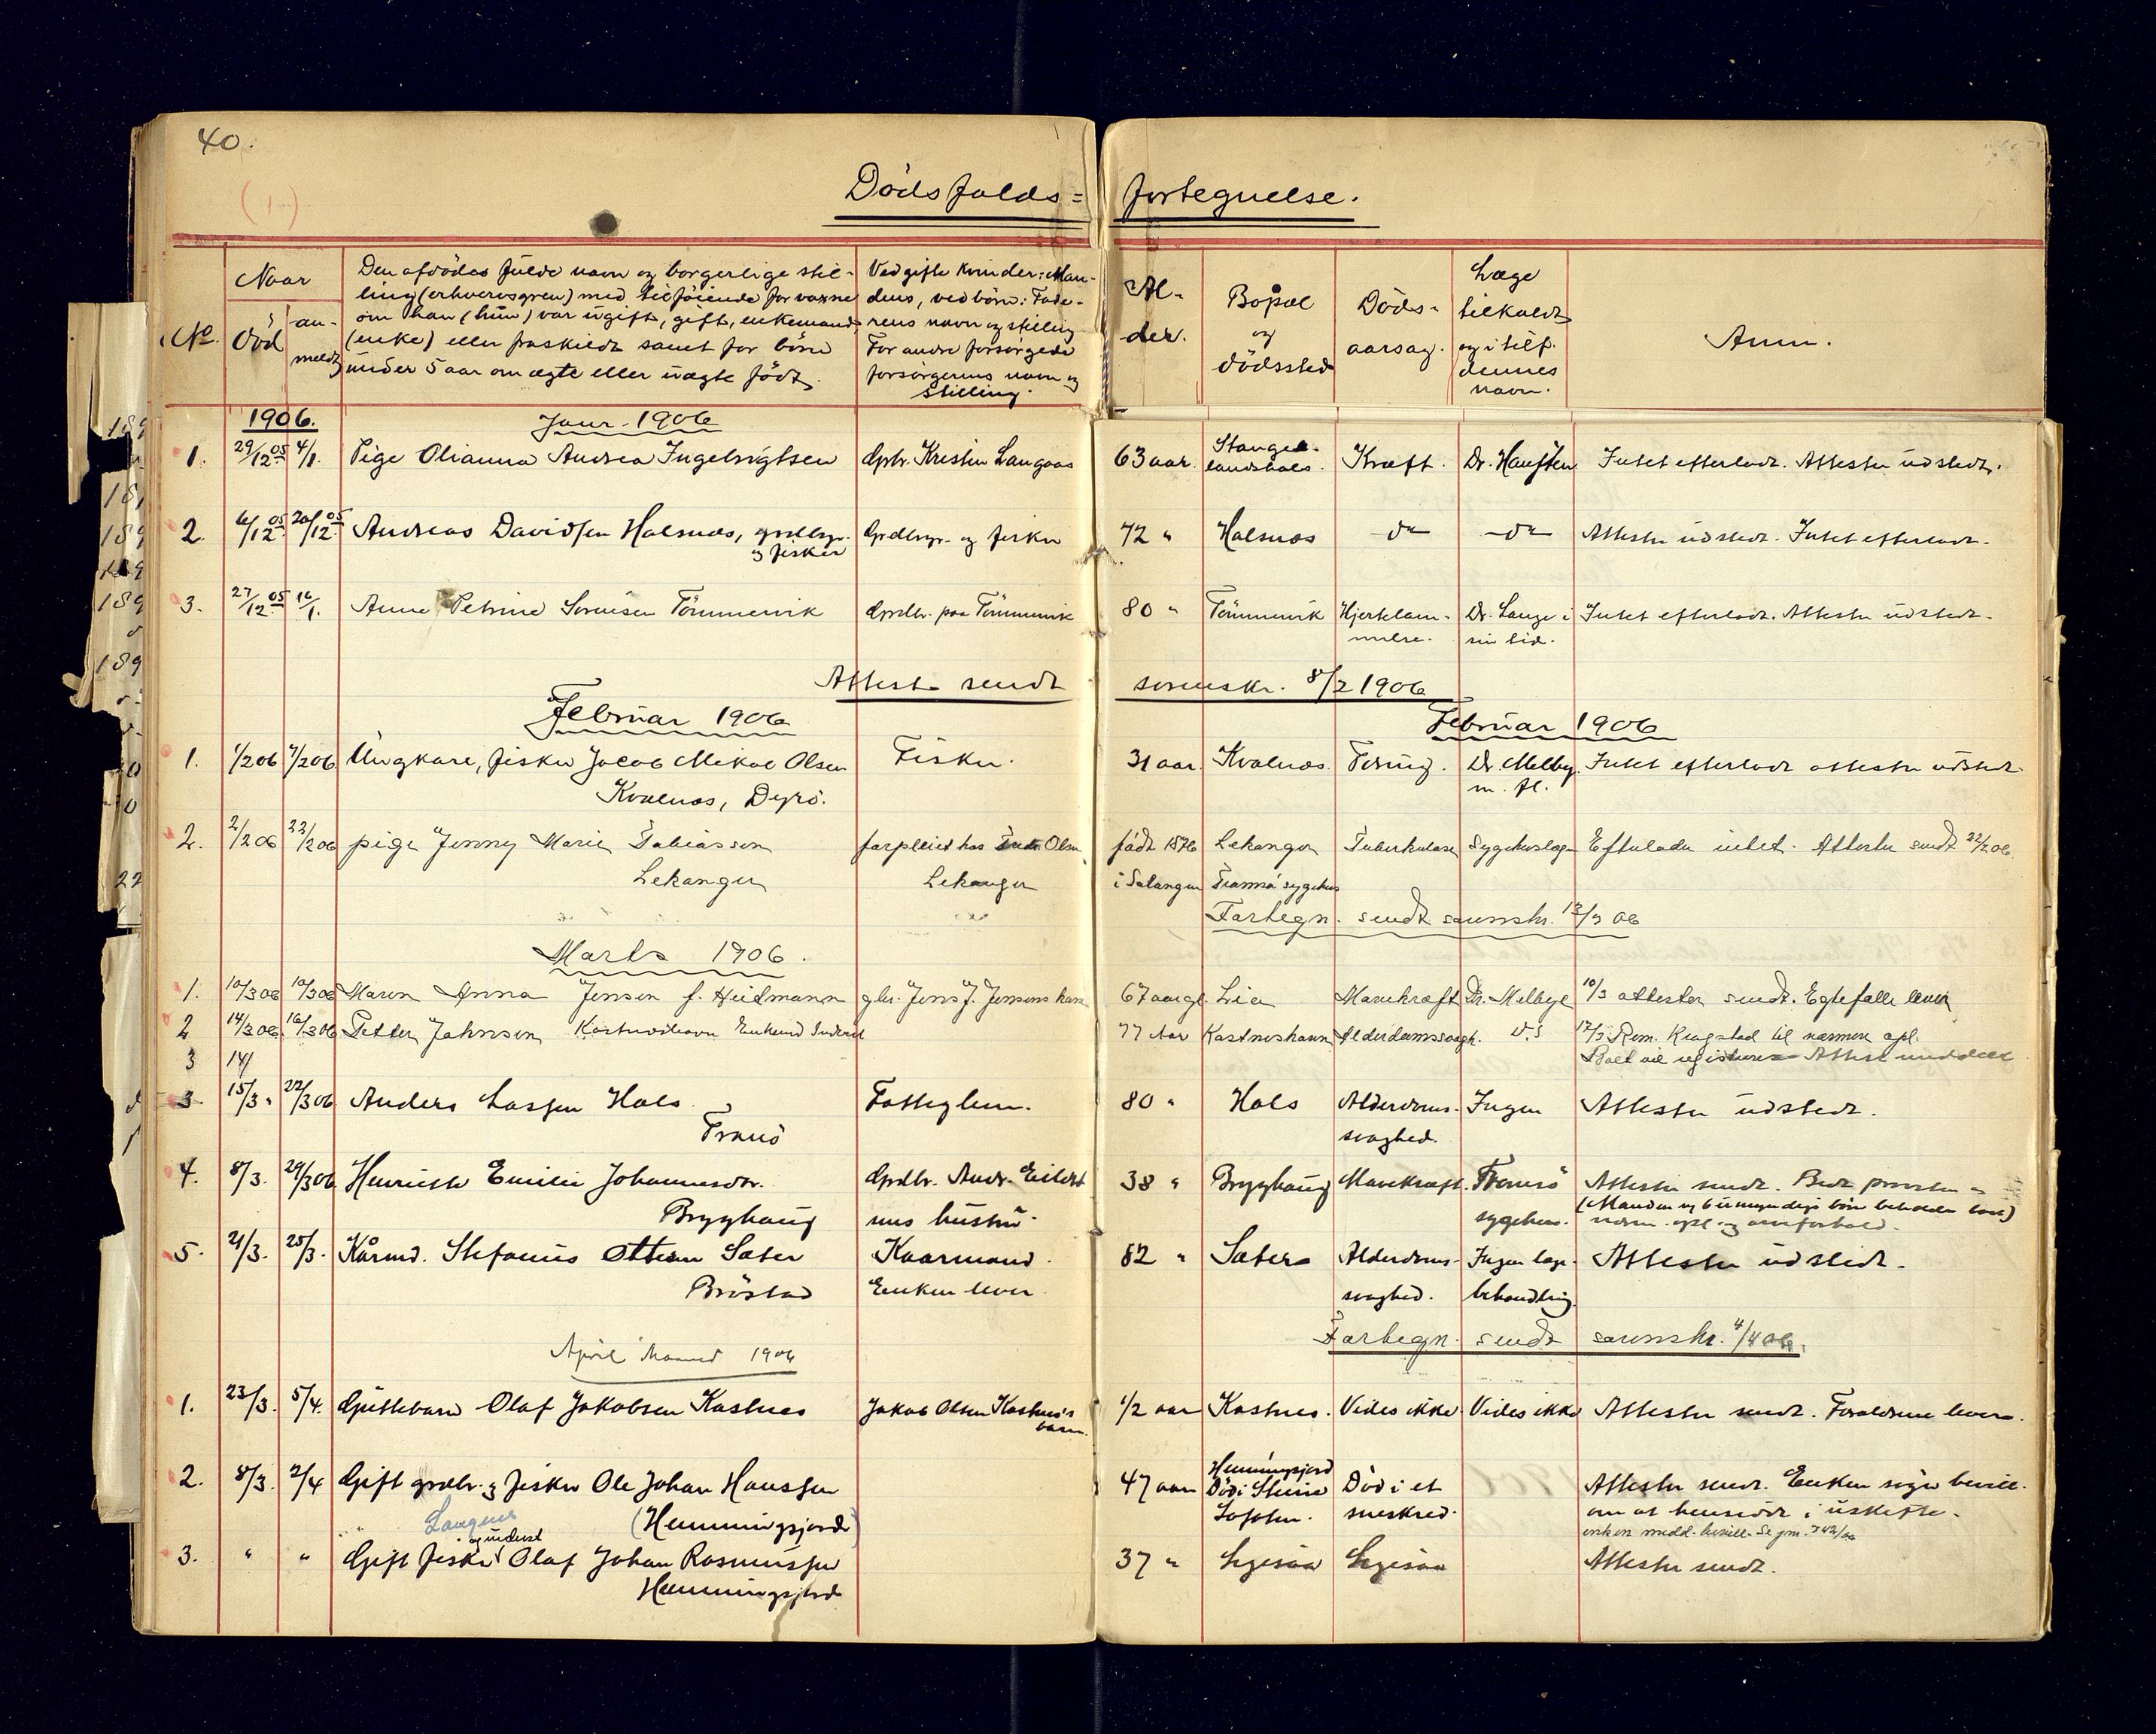 40.
(1)
Dödsfalds= fortegnelse.
No.
Naar
död
an-
meldt
Den afdödes fulde navn og borgerlige stil-
ling (erhvervsgren) med tilföiende for voxne
om han (hun) var ugift, gift, enkemand,
(enke) eller fraskildt samt for börn
under 5 aar om ægte eller uægte födt.
Ved gifte kvinder: Man-
dens, ved börn: Fade-
rens navn og stilling
For andre forsörgede
forsörgerens navn og
stilling.
Al-
der.
Bopæl
og
dödssted
Döds-
aarsag.
Læge
tilkaldt
og i tilf.
dennes
navn.
Anm.
1906. Janr. 1906
1. 29/12 05 4/1. Pige Olianna Andrea Ingebrigtsen Gprbr. Kristen Langaas 63 aar. Stange-
landshals. Kræft. Dr. Intet efterladt. Attester udstedt.
2. 6/12 05 20/12 05 Andreas Davidsen Halsnæs, grdbgr.
og fisker Grdbgr. og fisker 72 " Halsnæs do do Attester udstedt. Intet efterladt.
3. 27/12 05 16/1. Anne Petrine Sörensen Tömmervik Grdbr. paa Tömmervik 80 " Tömmervik Hjertelam-
melse. Dr. Lange i
sin tid. Intet efterladt. Attester udstedt.
Attest sendt sorenskr. 8/2 1906
Februar 1906 Februar 1906
1. 1/2 06 7/2 06 Ungkarl, fisker Jacob Mikal Olsen
Kvalnæs, Dyrö. Fisker. 31 aar. Kvalnæs. Tæring. Dr. Melbye
m. fl. Intet efterladt attester udstedt.
2. 2/2 06 22/2 06 pige Jenny Marie Tobiassen
Lekangen forpleiet hos Olsen,
Lekangen födt 1876
i Salangen Lekangen
Tromsö sygehus Tuberkulose Sygehuslægen Efterlader intet. Attester sendt 22/2 06.
Fortegn. sendt sorenskr. 13/3 06
Marts 1906.
1. 10/3 06 10/3 06 Maren Anna Jensen f. Heidmann gbr. Jens J. Jensens kone 67 aar gl. Lia Mavekræft Dr. Melbye 10/3 attester sendt. Egtefælle lever
2 14/3 06. 16/3 06 Petter Johnsen Kastneshavn Enkemd Inderst 77 Aar Kastneshavn Alderdomssvagh. D.S 17/3 Rem. Krogstad til nærmere opl.
Attest meddelt
3 14/
3 15/3 " 22/3 06 Anders Lassen Hals
Tranö Fattiglem. 80 " Hals Alderdoms-
svaghed. Ingen Attester udstedt.
4. 8/3. 29/3 06 Henrikke Emilie Johannesdtr.
Brygghaug Grdbr. Andr. Eilert-
sens hustru. 38 " Brygghaug Mavekræft. Tromsö
sygehus. Attester sendt.
(Manden og 6 umyndige börn beholder boet)
5. 21/3. 25/3. Kårmd. Stefanus Ottesen Sæter
Bröstad Kaarmand.
Enken lever 82 " Sæter Alderdoms-
svaghed. Ingen læge-
behandling. Attester udstedt.
Fortegn. sendt sorenskr. 4/4 06.
April Maaned 1906
1. 23/3. 5/4. Guttebarn Olaf Jakobsen Kastnes Jakob Olsen Kastnes's
barn. 1/2 aar Kastnes. Vides ikke Vides ikke Attester sendt. Forældrene lever.
2. 8/3. 2/4 Gift grdbr. og fisker Ole Johan Hanssen
(Hemmingsjord) 47 aar Hemmingsjord
Död i Steine
Lofoten. Död i et
sneskred. Attester sendt. Enken söger bevill.
om at hensidde i uskifte.
3. " " Gift fisker og inderst Olaf Johan Rasmussen
Hemmingsjord 37 " Ligesaa Ligesaa Attester sendt.